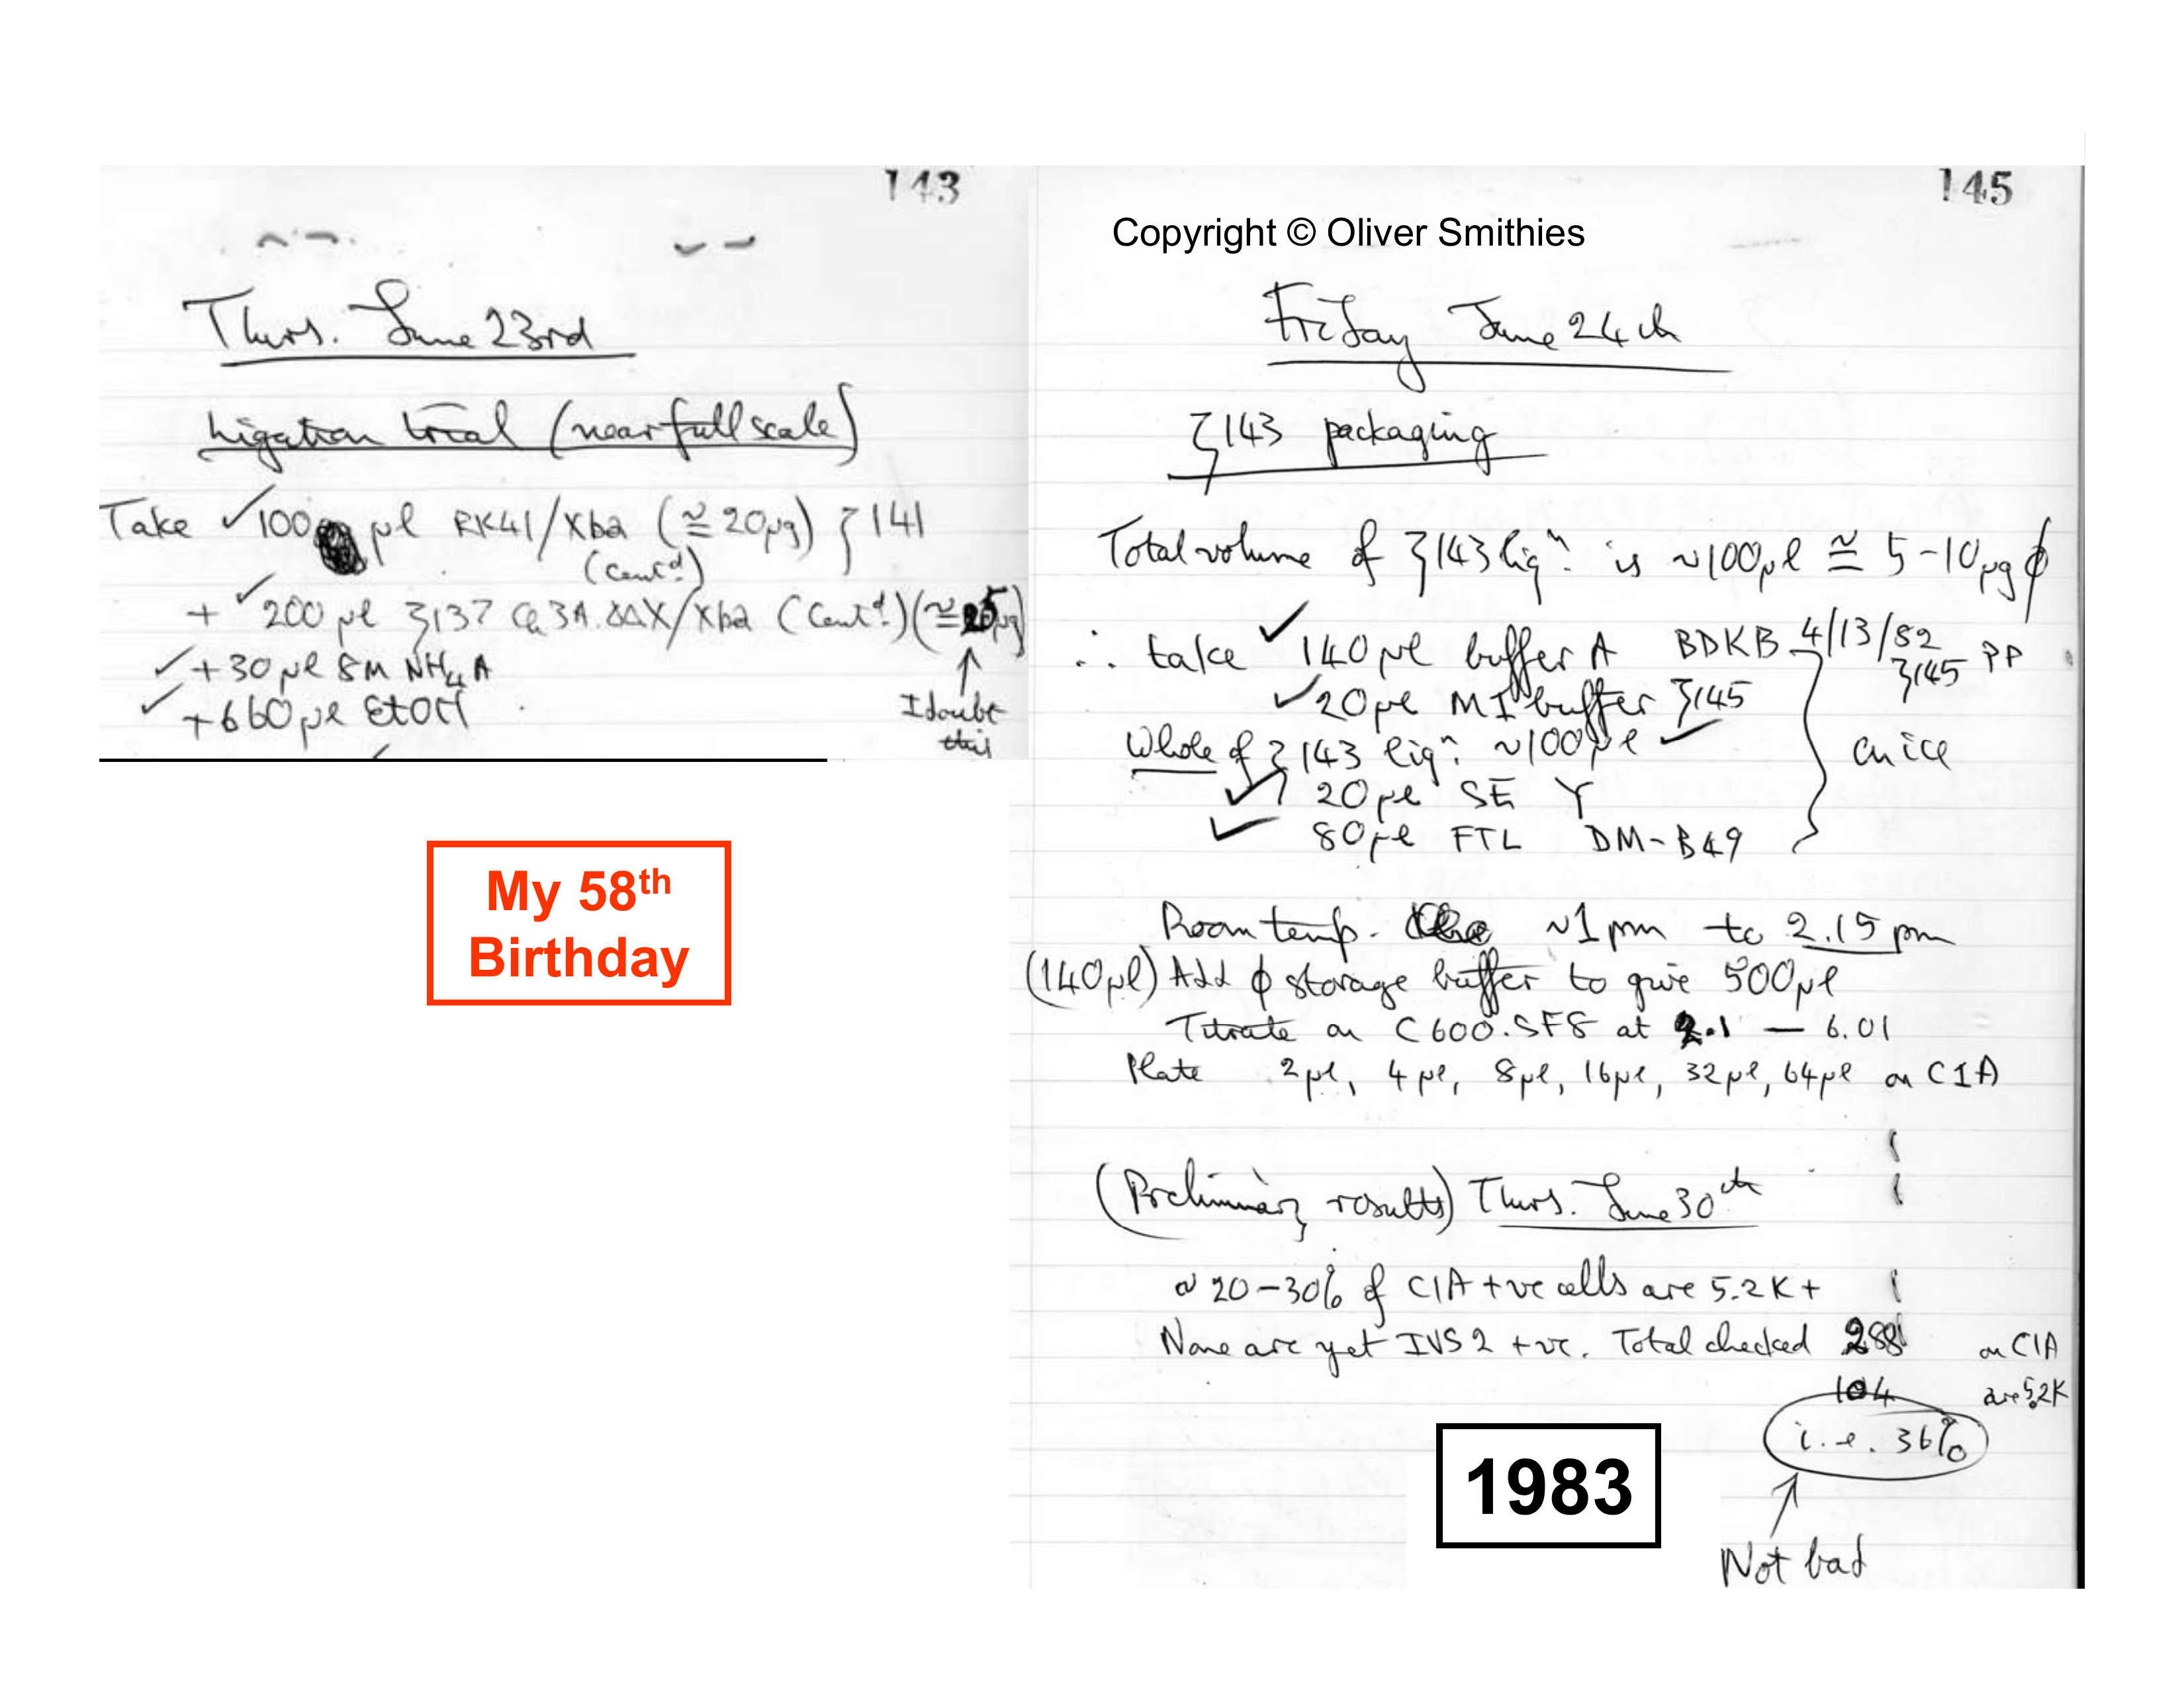 143
Thurs. June 23rd
Ligation trial (near full scale)
Take ✓100 µl RK41/Xba (≅ 20µg) ξ 141
(Cent'd)
+ ✓200 µl ξ137 Ca3A.ΔΔX/Xba (Cent'd) (≅ 5µg)
✓ +30 µl 8M NH4A
✓ +660 µl EtOH
I doubt
this
My 58th
Birthday
145
Copyright © Oliver Smithies
Friday June 24th
ξ143 packaging
Total volume of ξ143 lign is ~100µl ≅ 5-10µg ϕ
∴ take ✓ 140µl buffer A BDKB 4/13/82
ξ145 PP
✓20µl MI buffer ξ145
Whole of ξ143 lign ~100µl ✓
on ice
✓ 20µl SE Y
✓ 80µl FTL DM-B49
Room temp. ~1pm to 2.15pm
(140µl) Add ϕ storage buffer to give 500µl
Titrate on C600.SF8 at 2.1 — 6.01
Plate 2µl, 4µl, 8µl, 16µl, 32µl, 64µl on C1A
(Preliminary results) Thurs. June 30th
~ 20-30% of C1A +ve cells are 5.2K+
None are yet IVS2 +ve. Total checked 288 on C1A
104 are 5.2K
i.e. 36%
1983
Not bad